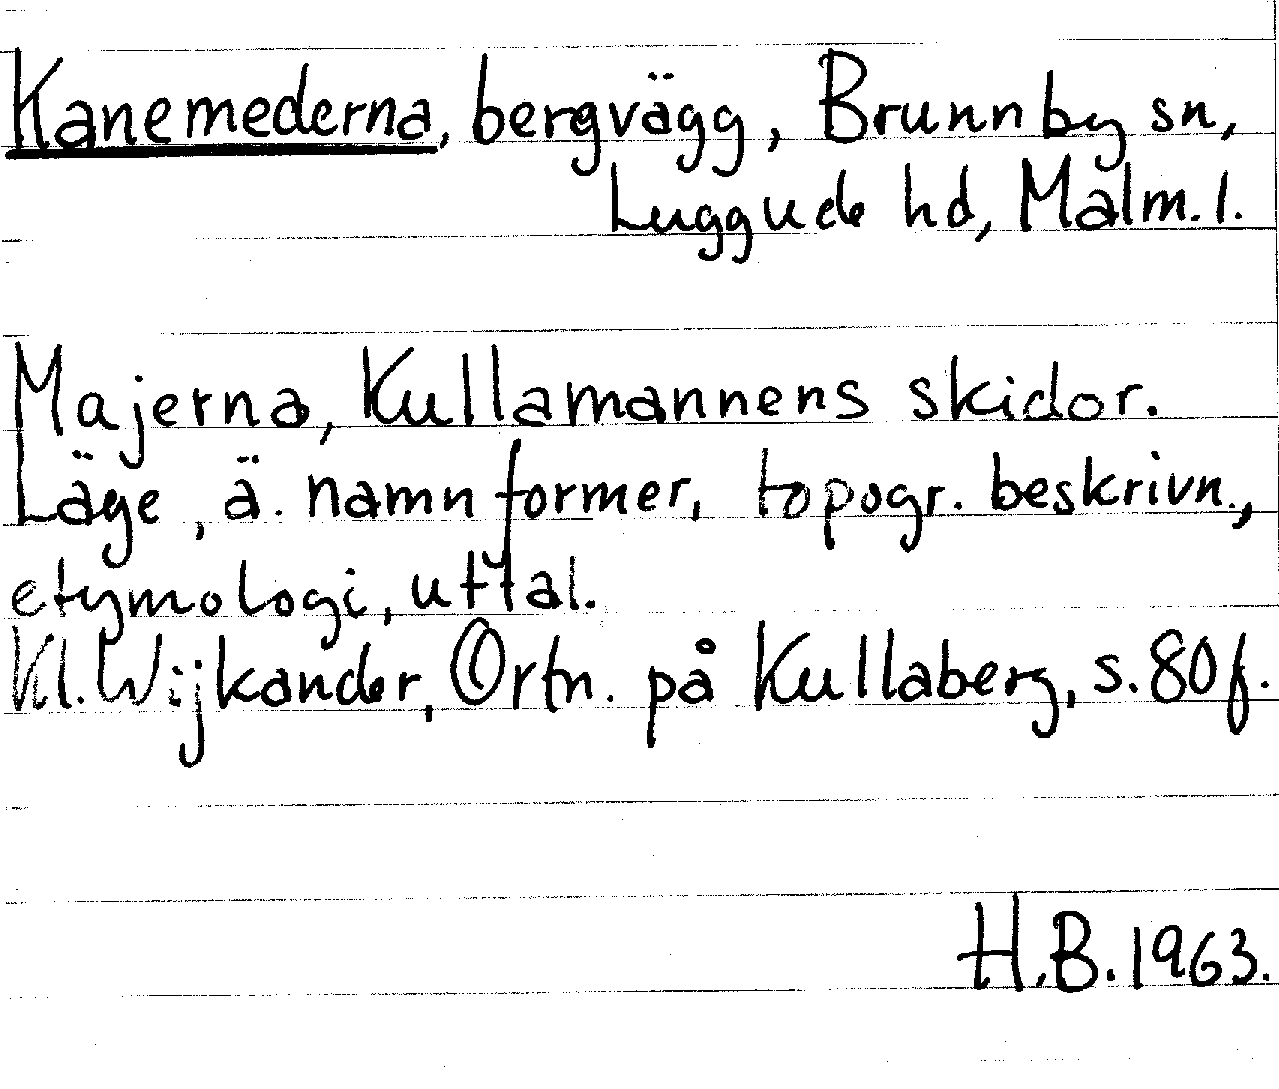 Kanemederna, bergvägg, Brunnby sn,
Luggude hd, Malm. l.
Majerna, Kullamannens skidor.
Läge, ä. namnformer, topogr. beskrivn.,
etymologi, uttal.
Kl. Wijkander, Ortn. på Kullaberg, s. 80 f.
H.B. 1963.